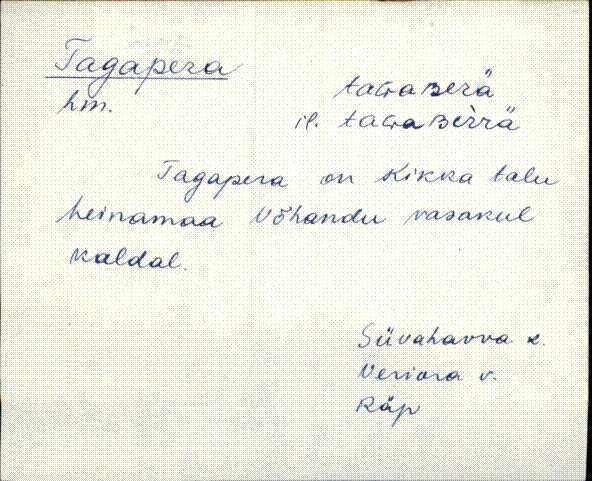 Tagapera
hm.
taGaBerä
il. taGaBèrrä
Tagapera on Kikka talu
heinamaa Võhandu vasakul
kaldal.
Süvahavva k.
Veriora v.
Räp